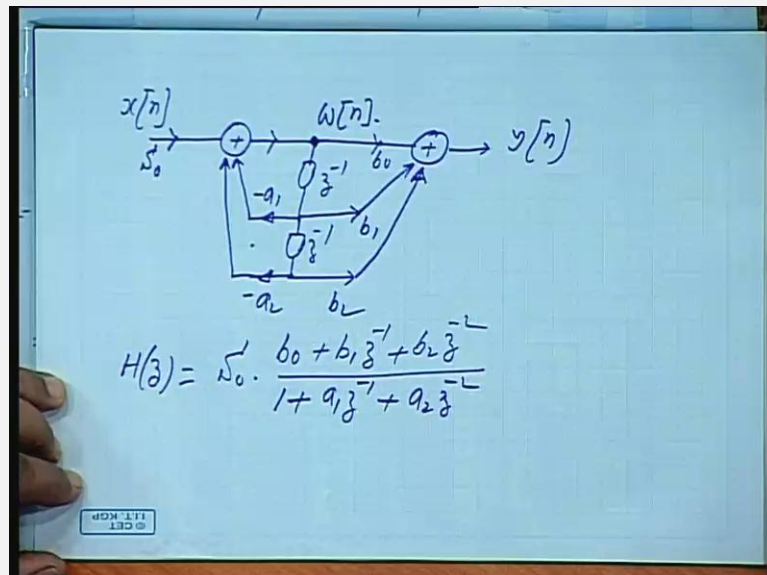 x[n] ω[n]. y[n]
S₀ + b₀ +
z⁻¹
-a₁ b₁
z⁻¹
-a₂ b₂
H(z) = S₀ · (b₀ + b₁z⁻¹ + b₂z⁻²) / (1 + a₁z⁻¹ + a₂z⁻²)
© CET
I.I.T. KGP